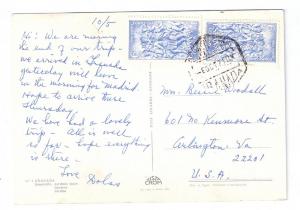 10/5
Hi: We are nearing
the end of our trip -
we arrived in Granada
yesterday will leave
in the morning for Madrid.
Hope to arrive there
Thursday.
We have had a lovely
trip - All is well
so far - hope everything
is there -
Love
GRANADA
Mrs. Woodall
601 N. Kenmore St.
Arlington, Va
22201
U.S.A.